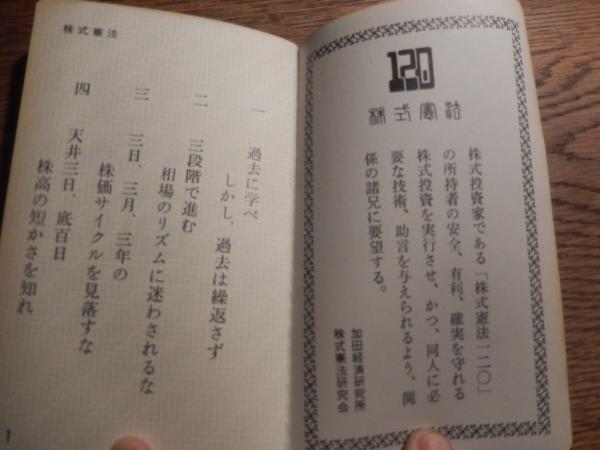 120
株式憲法
株式投資家である「株式憲法一二〇」
の所持者の安全、有利、確実を守れる
株式投資を実行させ、かつ、同人に必
要な技術、助言を与えられるよう、関
係の諸兄に要望する。
加田経済研究所
株式憲法研究会
株式憲法
一 過去に学べ
しかし、過去は繰返さず
二 三段階で進む
相場のリズムに迷わされるな
三 三日、三月、三年の
株価サイクルを見落すな
四 天井三日、底百日
株高の短かさを知れ
1